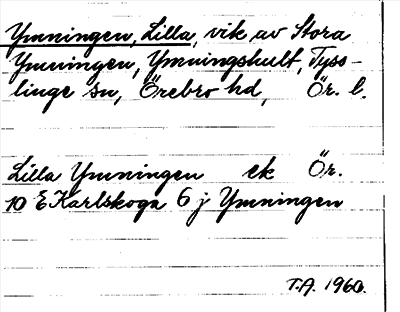 Ymningen, Lilla, vik av Stora
Ymningen, Ymningshult, Tyss-
linge sn, Örebro hd, Ör. l.
Lilla Ymningen ek Ör.
10 E Karlskoga 6 j Ymningen
T.A. 1960.